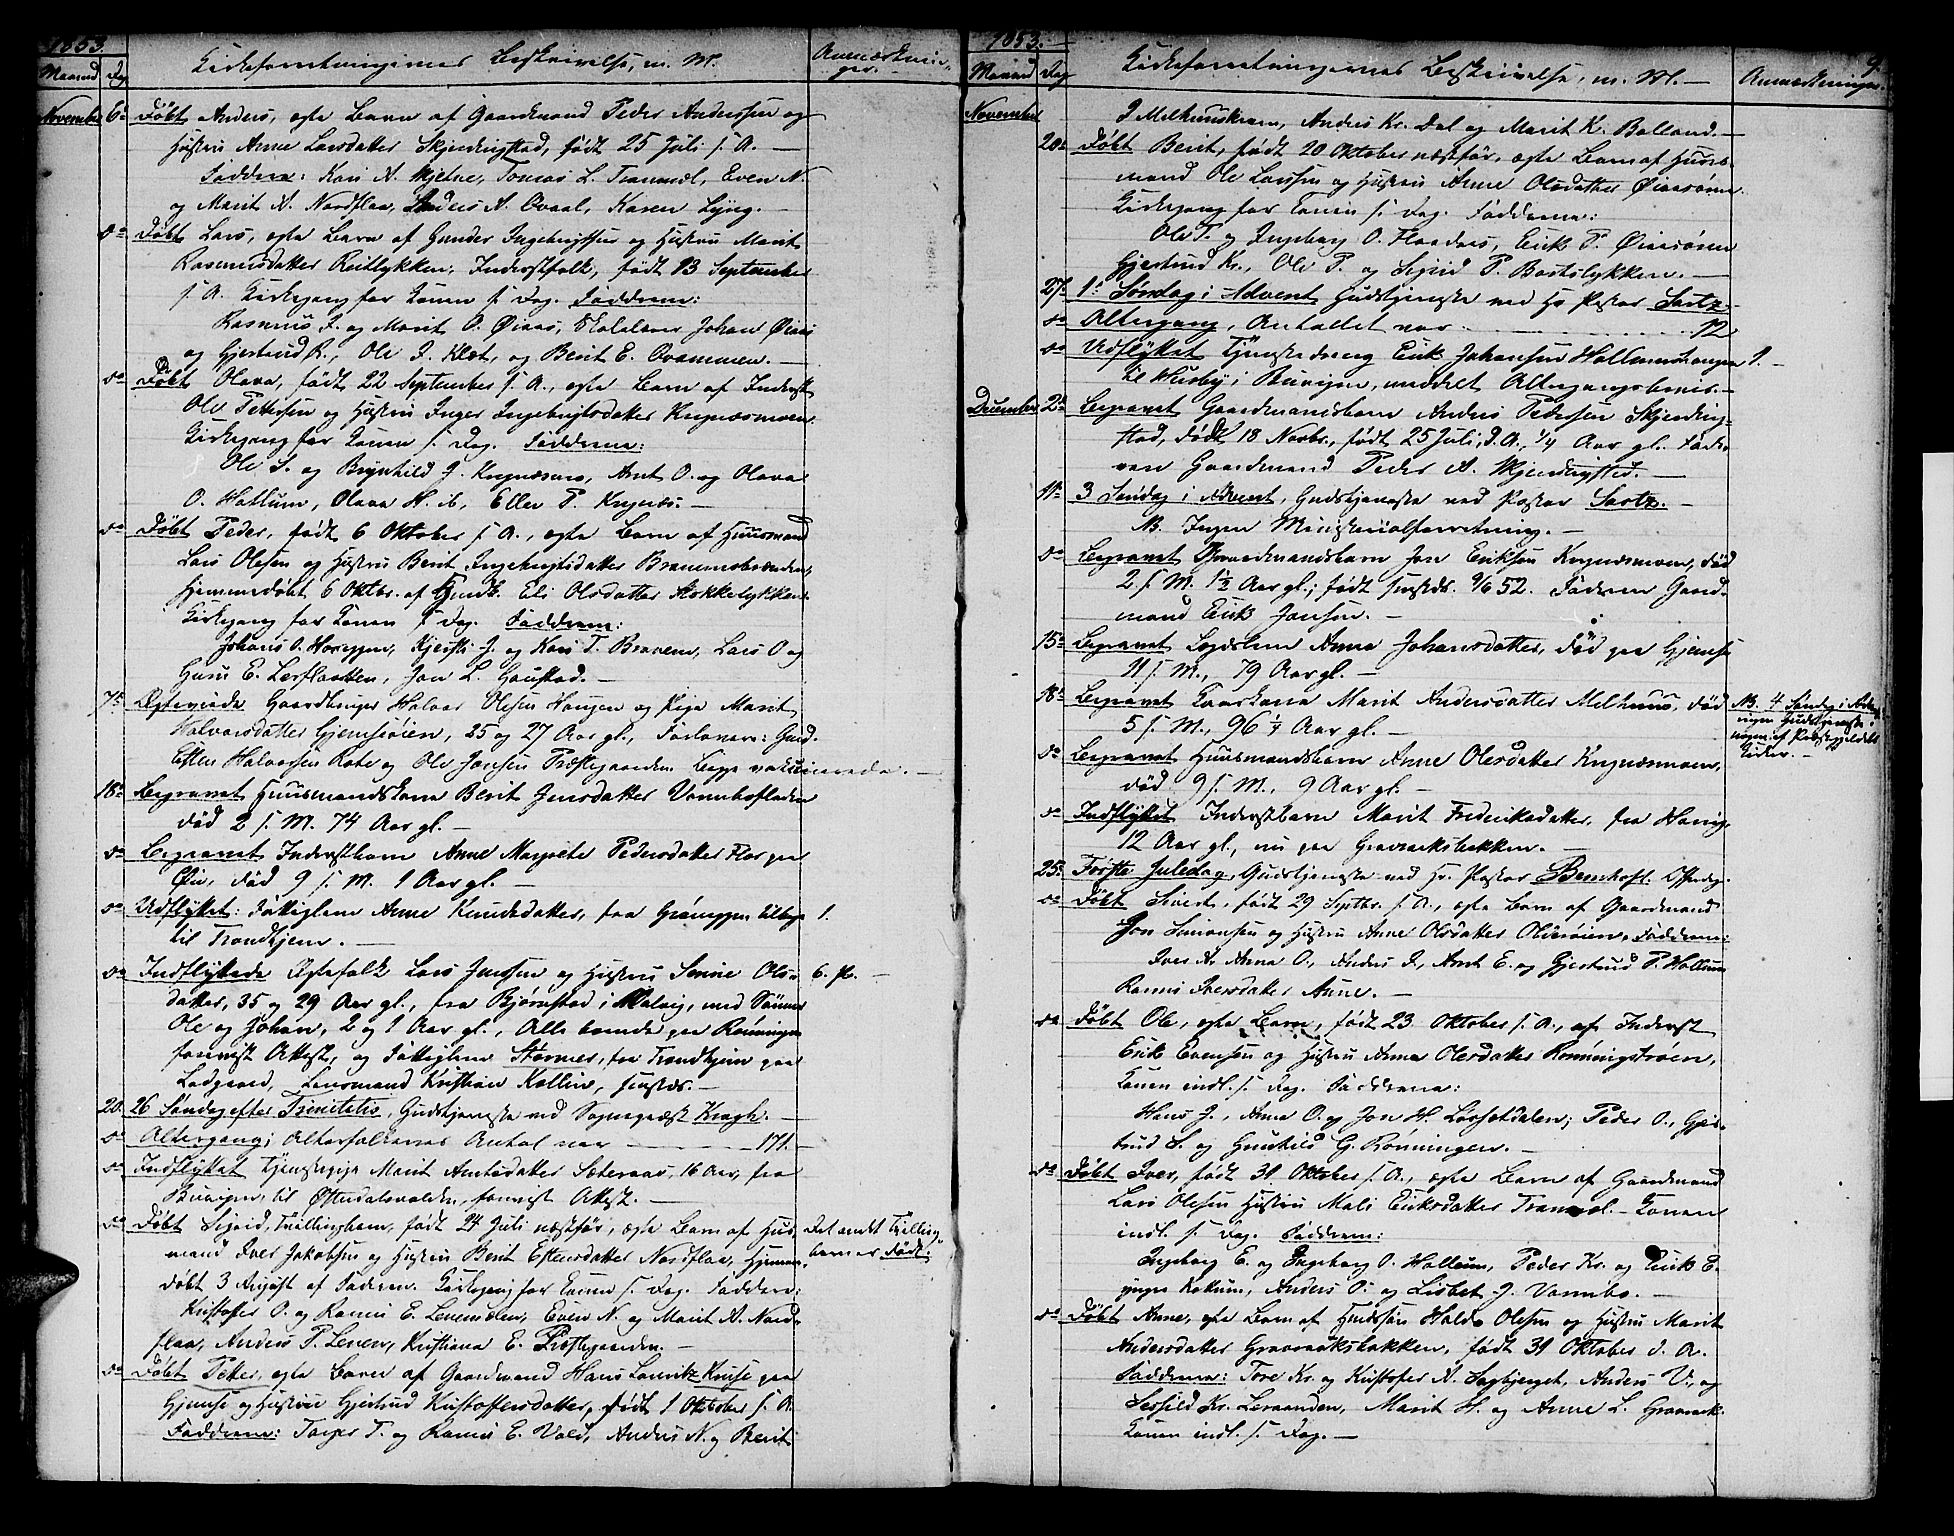 1853.
Maaned Dag Kirkeforretningernes Beskrivelse, m. M. Anmærkninger.
November 6te Døbt Anders, ægte Barn af Gaardmand Peder Anderssen og
Hustru Anne Larsdatter Skjerdingstad, født 25 Juli s. A. —
Faddere: Kari A. Skjetne, Tomas L. Tranmæl, Even N.
og Marit A. Nordflaa, Anders A. Øvaal, Karen Lyng. —
do Døbt Lars, ægte Barn af Gunder Ingebrigtsen og Hustru Marit
Rasmusdatter Reitlykken, Inderstfolk, født 13 September
s. A. Kirkegang for Konen s. Dag. Fadderne:
Rasmus J. og Marit O. Øiaas, Skolelærer Johan Øiaas
og Gjertrud R., Ole J. Klæt, og Berit E. Øvammen. —
do Døbt Olava, født 22 September s. A., ægte Barn af Inderst
Ole Pettersen og Hustru Inger Ingebrigtsdatter Kregnæsmoen.
Kirkegang for Konen s. Dag. Fadderne:
Ole S. og Brynhild J. Kregnæsmo, Arnt O. og Olava
O. Hollum, Olava H. ib, Ellev P. Kregnæs. —
do Døbt Peder, født 6 Oktober s. A., ægte Barn af Huusmand
Lars Olsen og Hustru Berit Ingebrigtsdatter
Hjemmedøbt 6 Oktbr. af Eli Olsdatter Stokkelykken
Kirkegang for Konen s. Dag. Fadderne:
Johans O. Horggen, Kjersti J. og Kari T. Bravem, Lars O og
Guru E. Lerflaatten, Jon L. Gaustad. —
7de Ægteviede Gaardbruger Halvor Olsen Haugen og Pige Marit
Halvorsdatter Gjemsøien, 25 og 27 Aar gl., Forlovere: Gmd.
Esten Halvorsen Rote og Ole Jonsen Præstegaarden. Begge vaksinerede. —
18de Begravet Huusmandskone Berit Jensdatter Vambofladen
Død 2 s. M. 74 Aar gl. —
do Begravet Inderstbarn Anne Margrete Pedersdatter Flor paa
Øie, Død 9 s. M. 1 Aar gl. —
do Udflyttet: Fattiglem Anne Knudsdatter, fra tilbage 1.
til Trondhjem. —
do Indflyttede Ægtefolk Lars Jensen og Hustru Serine Ols- 6. P. —
datter, 35 og 29 Aar gl., fra Bjørnstad i Malvig, med Sønner
Ole og Johan, 2 og 1 Aar gl., Alle boende paa Rønningen
forevist Attest, og Fattiglem Størmer, fra Trondhjem paa
Ladgaard, Lensmand Kristian Kallin, sinsteds. —
20. 26 Søndag efter Trinitatis, Gudstjeneste ved Sognepræst Kragh. —
do Altergang; Alterfolkenes Antal var — 171. —
do Indflyttet Tjenestepige Marit Arntsdatter Sæteraas, 16 Aar, fra
Buvigen, til Østerdalsvolden, forevist Attest. —
do Døbt Sigrid, Tvillingbarn, født 24 Juli næstfør, ægte Barn af Hus- Det andet Tvilling-
mand Iver Jakobsen og Hustru Berit Estensdatter Nordflaa, Hjemme- barn er Dødt.
døbt 3 August af Faderen. Kirkegang for Konen s. Dag. Faddere:
Kristofer O. og Ramus E. Leremelen, Even N. og Marit A. Nord-
flaa, Anders P. Leren, Kristiana E. Præstegaarden. —
do Døbt Petter, ægte Barn af Gaardmand Hans Lauritz Kruse paa
Gjemse og Hustru Gjertrud Kristoffersdatter, født 1 Oktober s. A.
Fadderne: Torger T. og Ramus E. Vold, Anders N. og Berit
1853. 9.
Maaned Dag Kirkeforretningernes Beskrivelse, m. M. — Anmærkninger.
November J Melhuuskrem, Anders Kr. Dal og Marit K. Bolland. —
20de Døbt Berit, født 20 Oktober næstfør, ægte Barn af Huus-
mand Ole Larsen og Hustru Anne Olsdatter Øiaasøien.
Kirkegang for Konen s. Dag. Fadderne:
Ole T. og Ingeborg O. Flaadnes, Erik P. Øiaasøien
Gjertrud Kr., Ole P. og Sigrid P. Bortslykken. —
27de 1ste Søndag i Advent Gudstjeneste ved Hr. Pastor Sartz. —
do Altergang, Antallet var 72
do Udflyttet Tjenestedreng Erik Johansen Hollumshaugen 1. —
til Husby i Buvigen, meddelt Altergangsbevis. —
December 2de Begravet Gaardmandsbarn Anders Pedersen Skjerding-
stad, Død 18 Novbr., født 25 Juli, d. A., 1/4 Aar gl. Fade-
ren Gaardmand Peder A. Skjerdingsted. —
11te 3 Søndag i Advent, Gudstjeneste ved Pastor Sartz. —
NB. Ingen Ministerialforretning. —
do Begravet Gaardmandsbarn Jon Eriksen Kregnæsmoen, Død
2 s. M. 1 1/2 Aar gl.; født sinsteds. 9/6 52. Faderen Gaard-
mand Erik Jonsen. —
15de Begravet Lægdslem Anna Johansdatter, Død paa Gjemse
11 s. M., 79 Aar gl. —
18de Begravet Kaarkone Marit Andersdatter Melhuus, Død NB. 4 Søndag i Advent
5 s. M., 96 1/4 Aar gl. — ingen Gudstjeneste i
do Begravet Huusmandsbarn Anne Olesdatter Kregnæsmoen, nogen af Præstegjeldets
Død 9 s. M., 9 Aar gl. — Kirker. —
do Indflyttet Inderstbarn Marit Frederiksdatter, fra Horrig,
12 Aar gl., nu paa Gravraaksbakken. —
25de Første Juledag, Gudstjeneste ved Hr. Pastor Bernhoft. Offerdag.
do Døbt Sivert, født 29 Septbr. s. A., ægte Barn af Gaardmand
Jon Simonsen og Hustru Anne Olsdatter Olderøien. Fadderne:
Iver A. Anna O., Anders J., Arnt E. og Gjertrud P. Hollum
Ramus Iversdatter Aune. —
do Døbt Ole, ægte Barn, født 23 Oktober s. A., af Inderst
Erik Evensen og Hustru Anna Olesdatter Rønningstrøen,
Konen indl. s. Dag. Fadderne:
Hans J., Anna O. og Jon H. Losjetdalen; Peder O., Gjer-
trud S. og Gunhild G. Rønningen. —
do Døbt Iver, født 31 Oktober s. A., ægte Barn af Gaardmand
Lars Olesen Hustru Mali Eriksdatter Tranmæl. — Konen
indl. s. Dag. Fadderne:
Ingeborg E. og Ingeborg O. Hollum, Peder Kr. og Erik E.
yngre Kattum, Anders O. og Lisbet J. Vambo. —
do Døbt Anne, ægte Barn af Haldo Olesen og Hustru Marit
Andersdatter Gravraaksbakken, født 31 Oktober d. A.
Fadderne: Tore Kr. og Kristofer A. Sagbjerget, Anders V., og
Sessild Kr. Leraanden, Marit H. og Anne L. Gravraak.
Konen indl. s. Dag. —